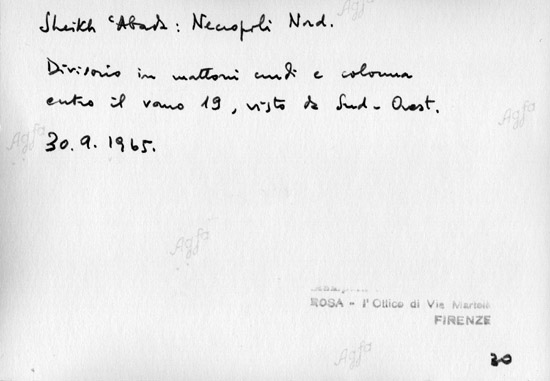 Sheikh ʿAbada: Necropoli Nord.
Divisorio in mattoni crudi e colonna
entro il vano 19, visto da Sud-Ovest.
30.9.1965.
Agfa
Agfa
Agfa
Agfa
Agfa
ROSA - l'Ottico di Via Martelli
FIRENZE
30